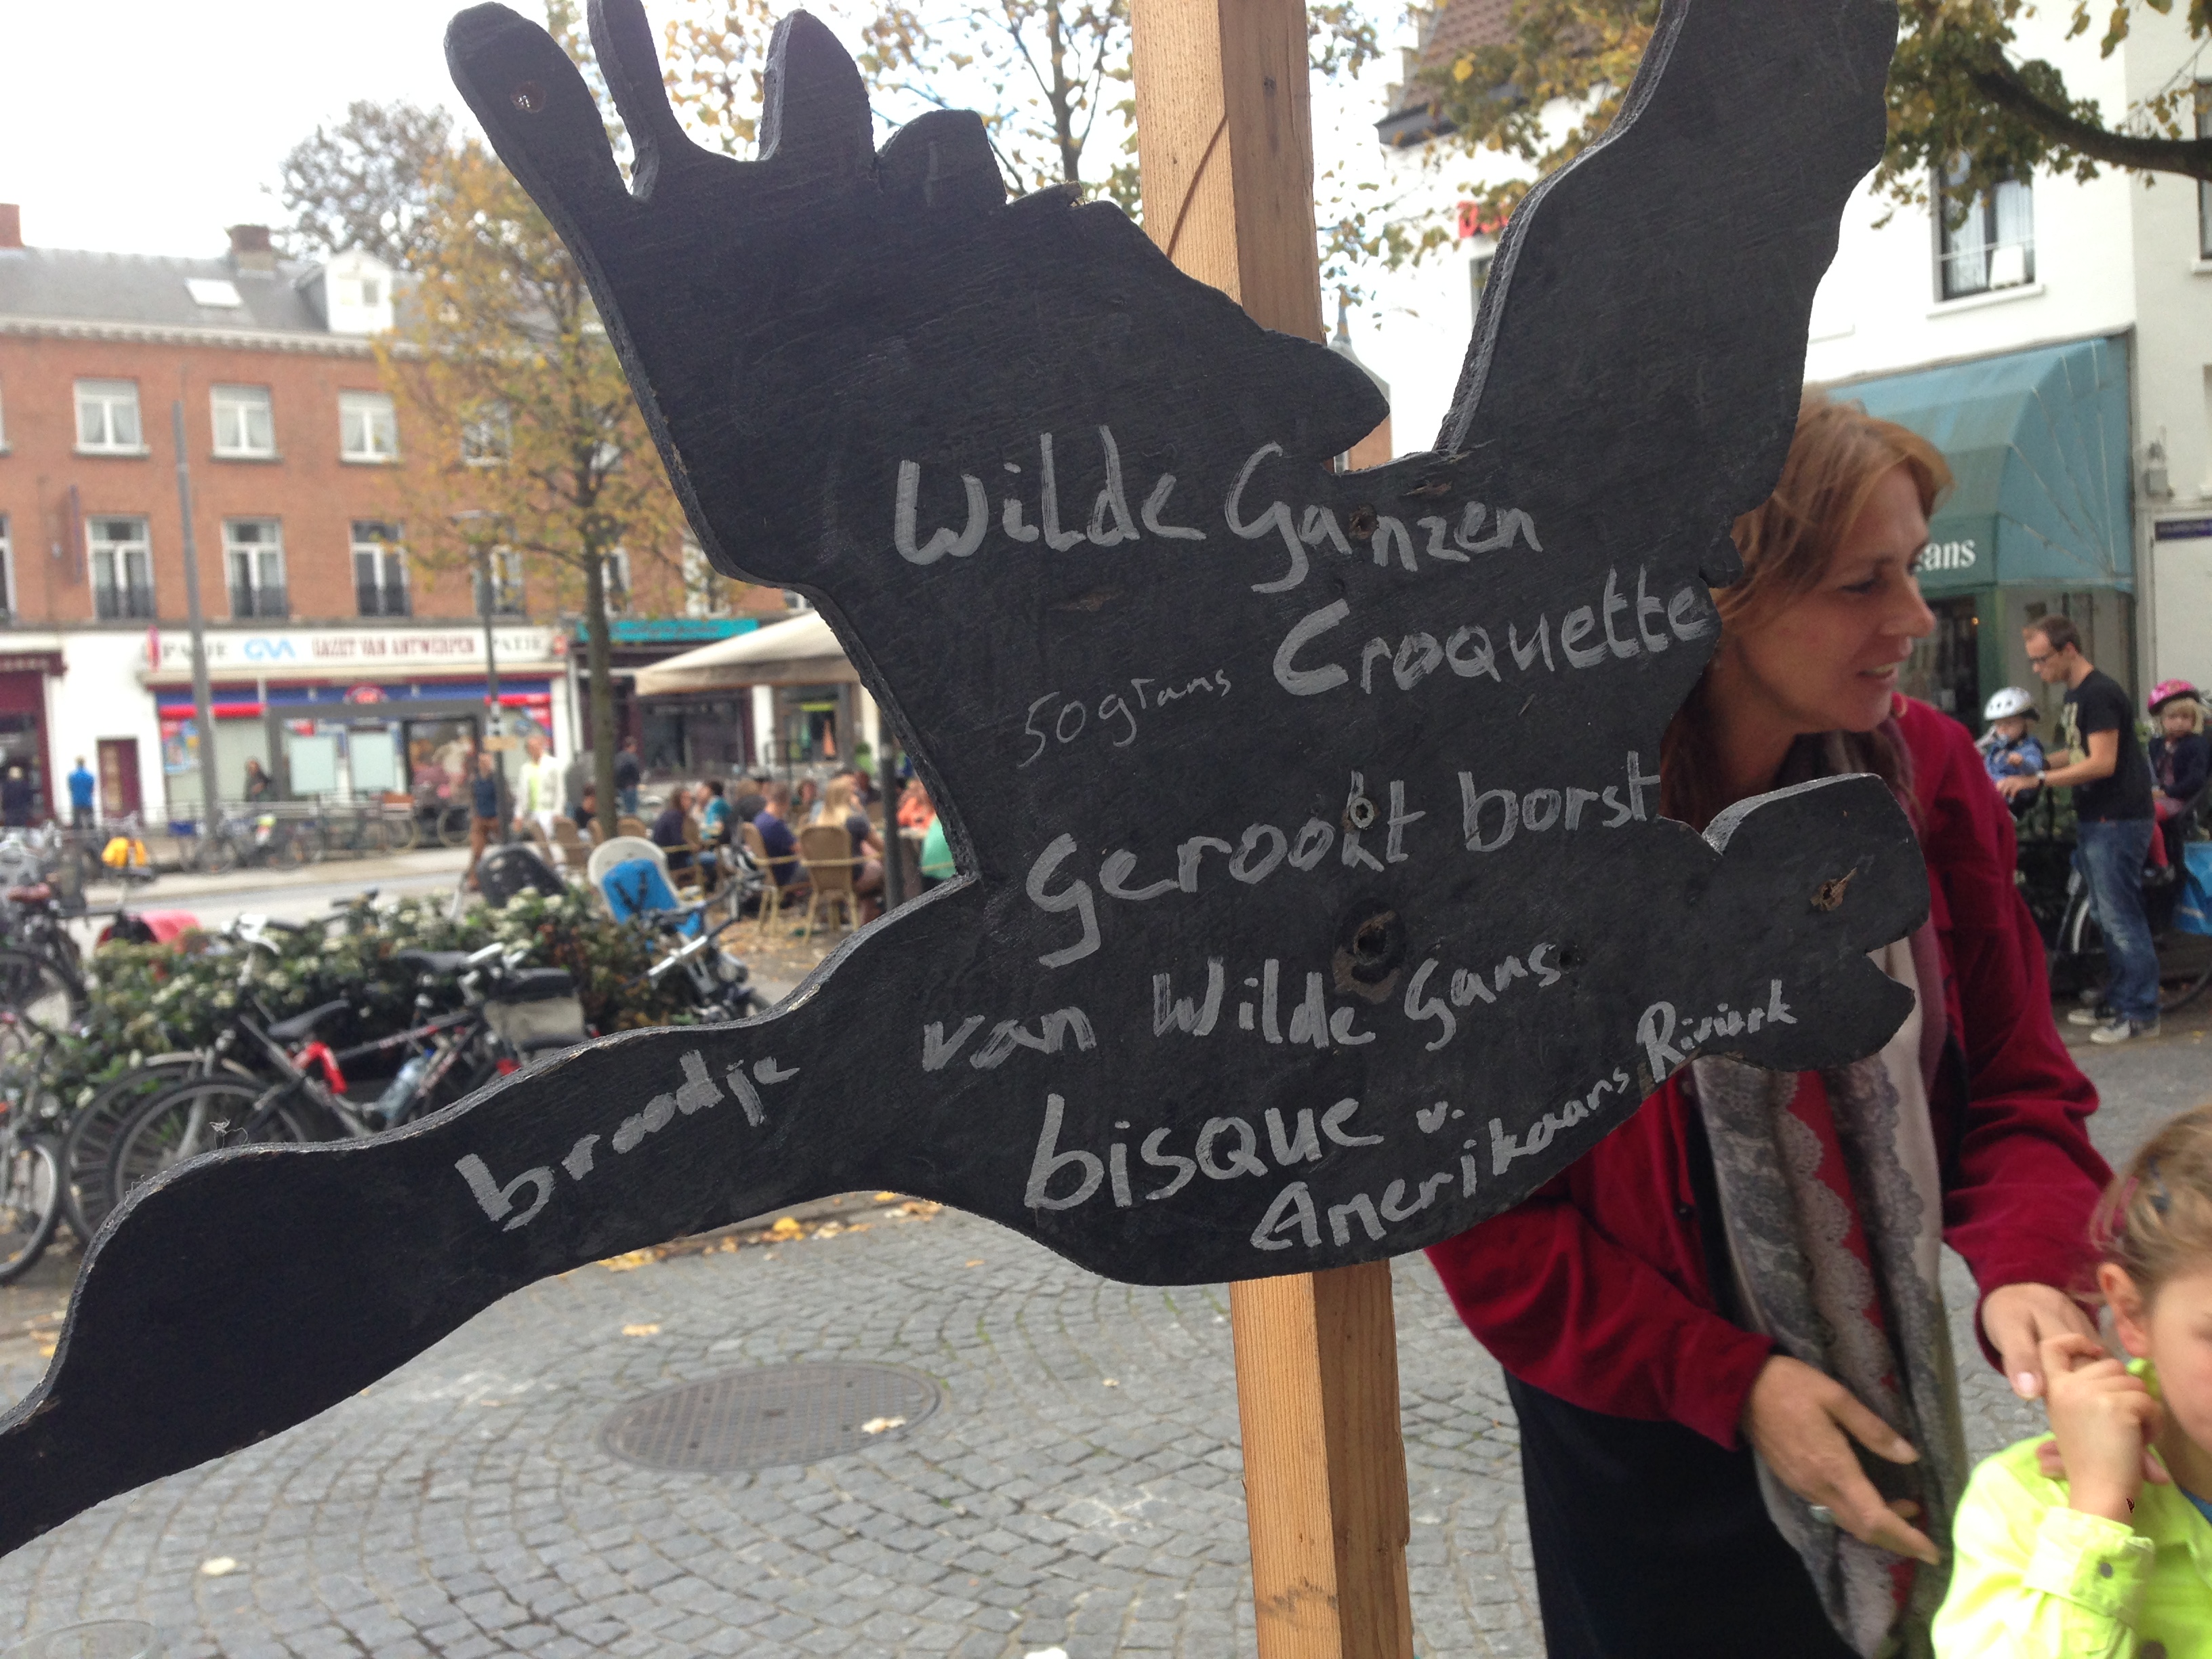 Wilde Ganzen
50 grams Croquette
Gerookt borst
van Wilde Gans
broodje
bisque v.
Amerikaans Rivierk
GVA GAZET VAN ANTWERPEN
ans